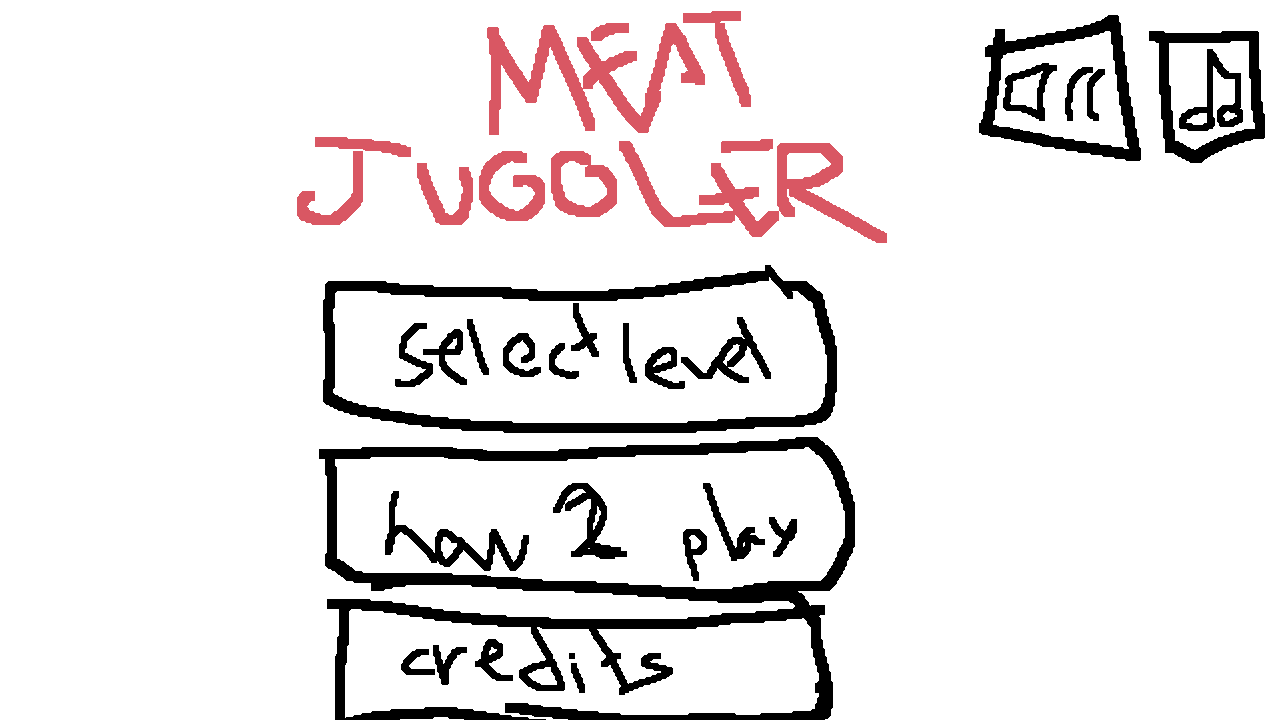 MEAT
JUGGLER
select level
how 2 play
credits